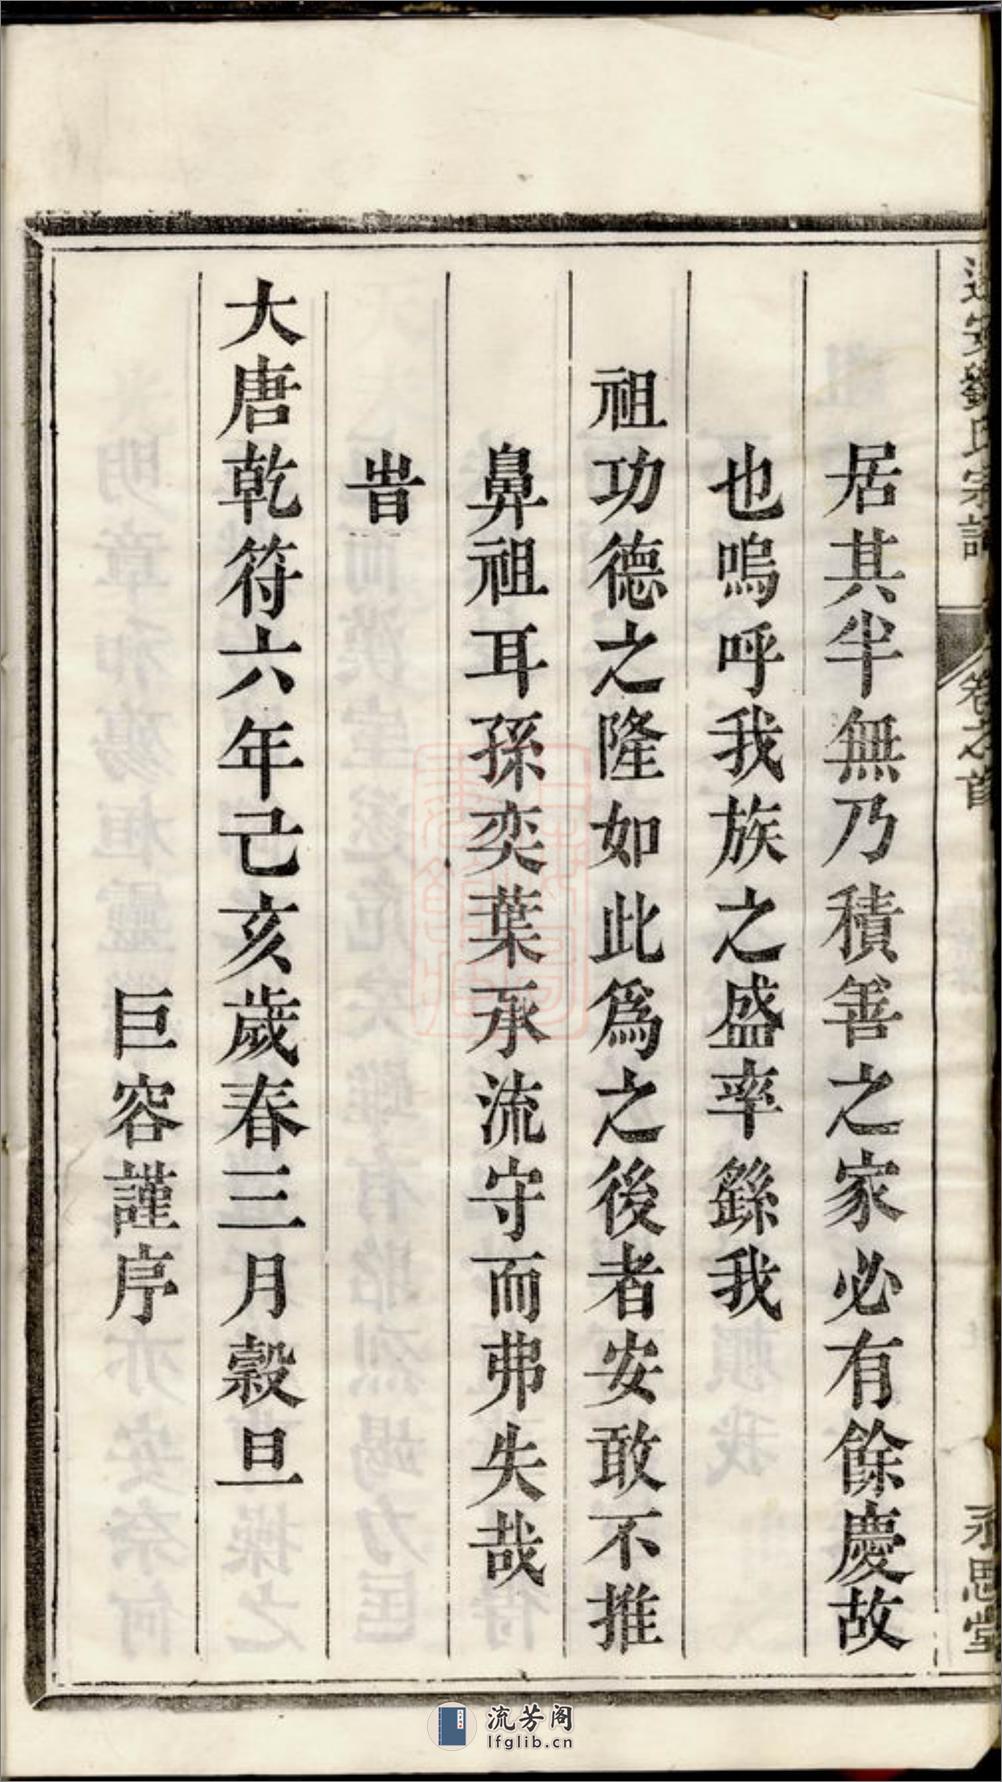 安劉氏宗譜 卷之首 承思堂
居其半無乃積善之家必有餘慶故
也嗚呼我族之盛率繇我
祖功德之隆如此爲之後者安敢不推
鼻祖耳孫奕葉承流守而弗失哉
旹
大唐乾符六年己亥歲春三月穀旦
巨容謹序
流芳阁
lfglib.cn